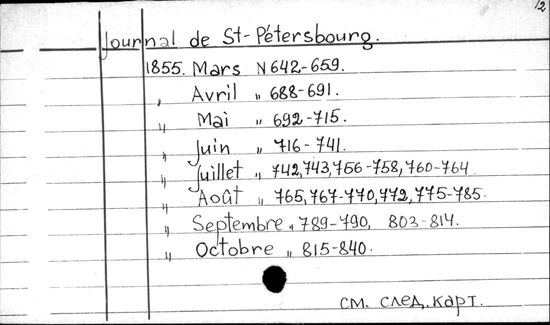 12
Journal de St-Pétersbourg.
1855. Mars N 642-659.
„ Avril „ 688-691.
„ Mai „ 692-715.
„ Juin „ 716-741.
„ Juillet „ 742,743,756-758,760-764
„ Août „ 765,767-770,772,775-785.
„ Septembre „ 789-790, 803-814.
„ Octobre „ 815-840.
см. след. карт.